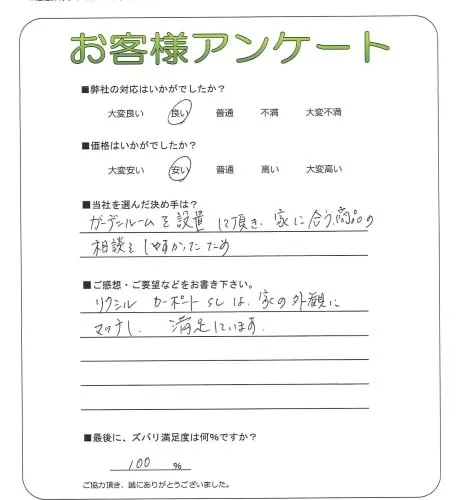 お客様アンケート
■弊社の対応はいかがでしたか？
大変良い 良い 普通 不満 大変不満
■価格はいかがでしたか？
大変安い 安い 普通 高い 大変高い
■当社を選んだ決め手は？
ガーデンルームを設置して頂き、家に合う商品の
相談をしたかったため
■ご感想・ご要望などをお書き下さい。
リクシル カーポートSCは、家の外観に
マッチし、満足しています。
■最後に、ズバリ満足度は何%ですか？
100 %
ご協力頂き、誠にありがとうございました。